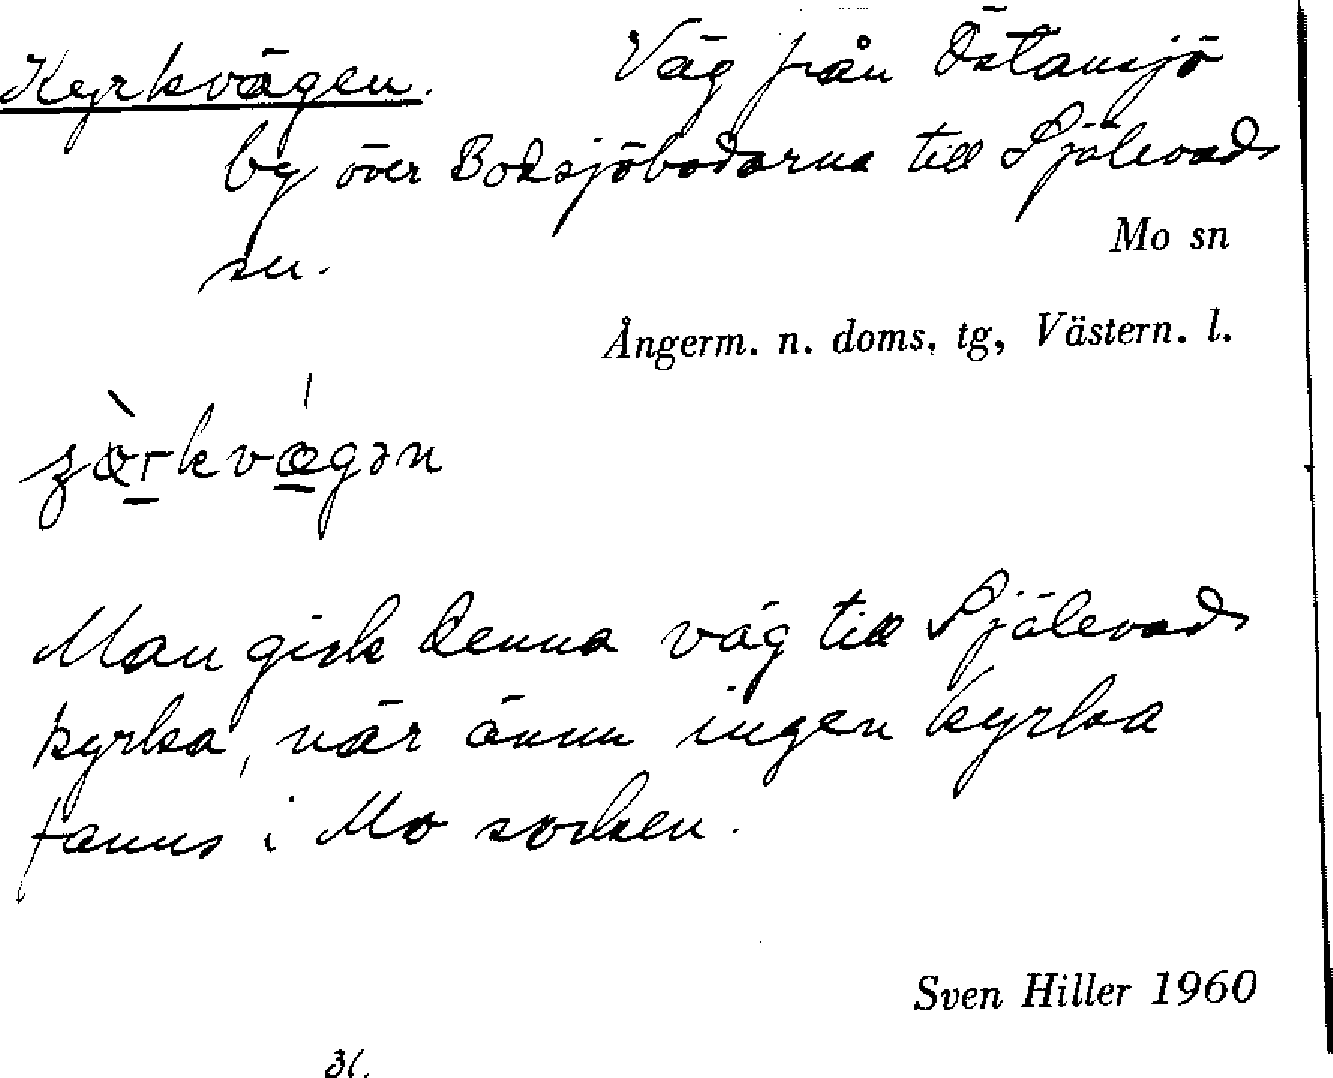 Kyrkvägen. Väg från Östansjö
by över Bodsjöbodarna till Själevads
sn.
Mo sn
Ångerm. n. doms. tg, Västern. l.
Man gick denna väg till Själevads
kyrka, när ännu ingen kyrka
fanns i Mo socken.
Sven Hiller 1960
31.